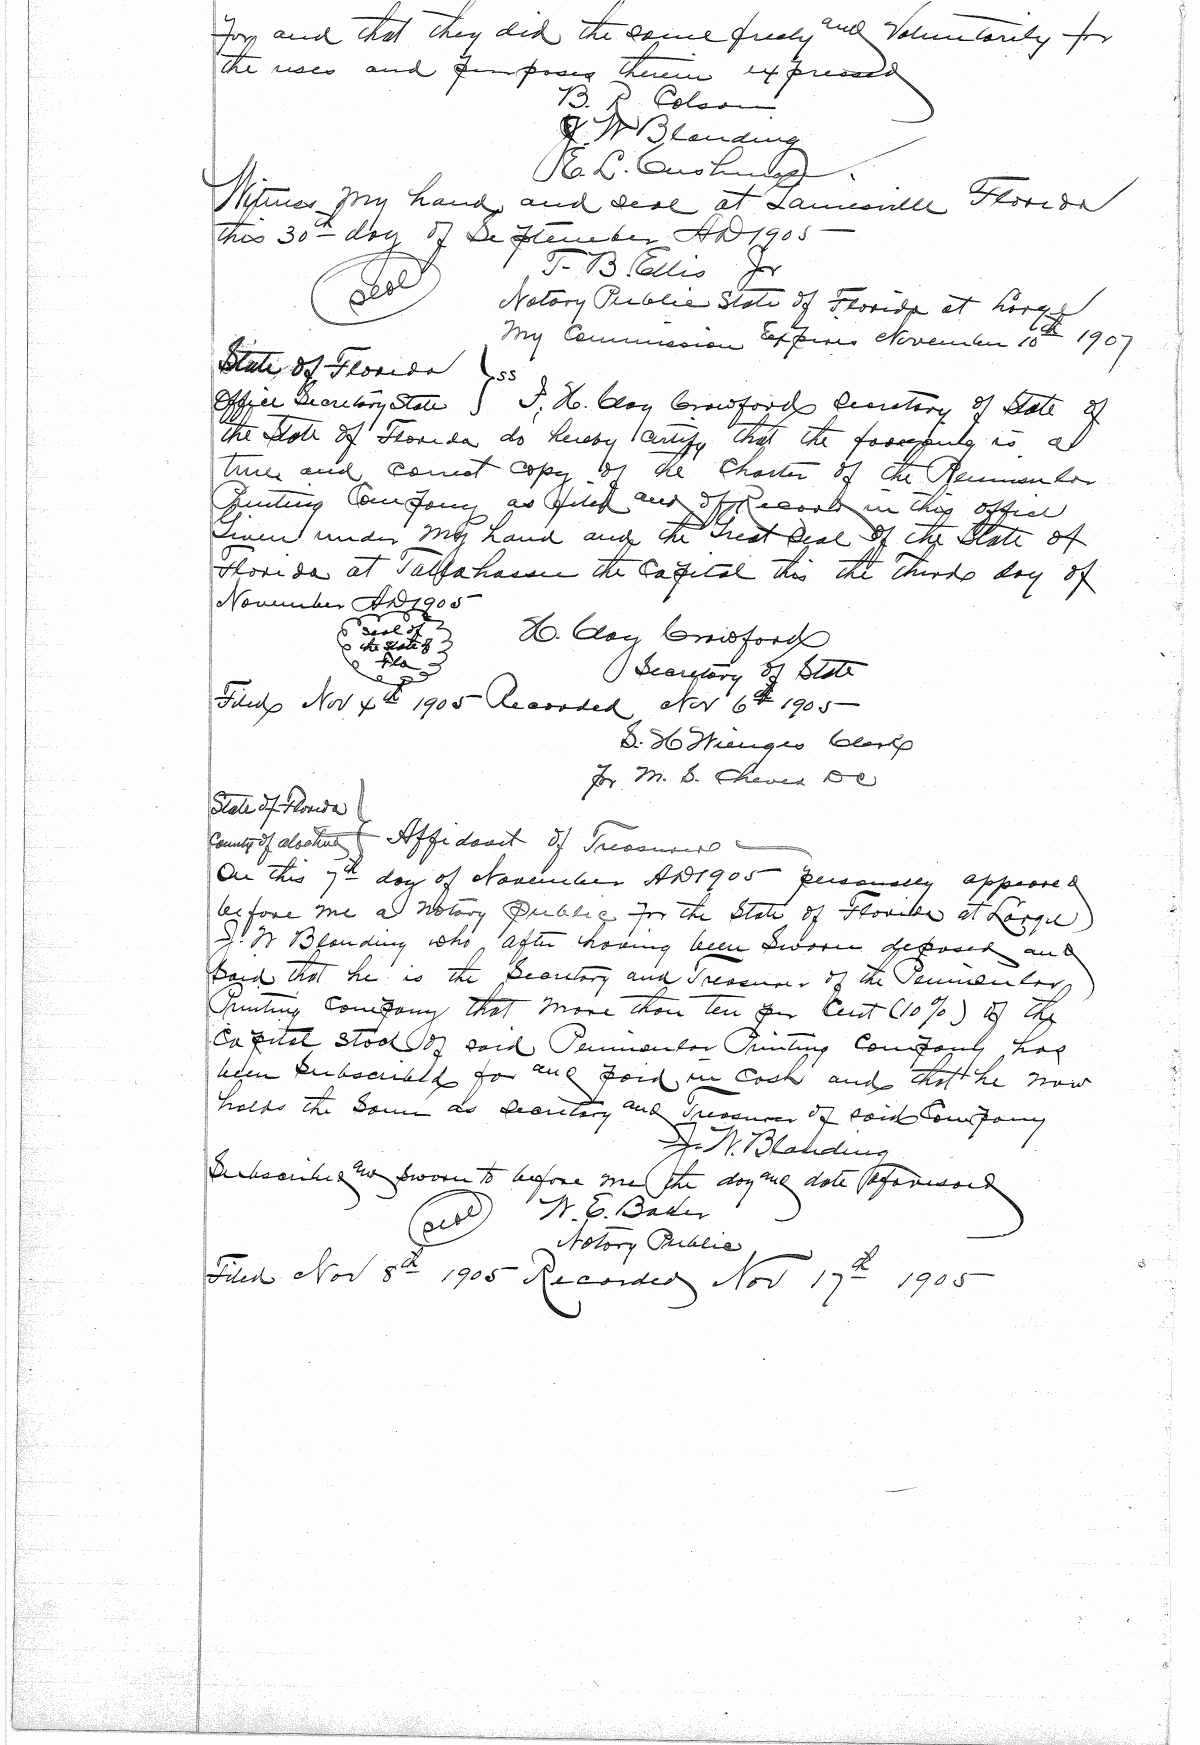 for and that they did the same freely and Voluntarily for
the uses and purposes therein expressed
B. R. Colson
J. W Blanding
E. L. Cushing
Witness my hand and seal at Gainesville Florida
this 30th day of September AD 1905
seal
T. B. Ellis Jr
Notary Public State of Florida at Large
My Commission Expires November 10th 1907
State of Florida
SS
Office Secretary State
I, H. Clay Crawford Secretary of State of
the State of Florida do hereby certify that the foregoing is a
true and correct copy of the Charter of the Peninsular
Printing Company as filed and of Record in this office
Given under my hand and the Great Seal of the State of
Florida at Tallahassee the Capital this the third day of
November AD 1905
Seal of
the State of
Fla
H. Clay Crawford
Secretary of State
Filed Nov 4th 1905 Recorded Nov 6th 1905
S. H Wienges Clerk
for M. S. Cheves DC
State of Florida
County of Alachua
Affidavit of Treasurer
On this 7th day of November AD 1905 personally appeared
before me a Notary Public for the State of Florida at Large
J. W Blanding who after having been Sworn deposed and
Said that he is the Secretary and Treasurer of the Peninsular
Printing Company that more than ten per Cent (10%) of the
Capital Stock of said Peninsular Printing Company has
been Subscribed for and paid in Cash and that he now
holds the Same as Secretary and Treasurer of said Company
J. W. Blanding
Subscribed and Sworn to before me the day and date aforesaid
seal
W. E. Baker
Notary Public
Filed Nov 8th 1905 Recorded Nov 17th 1905